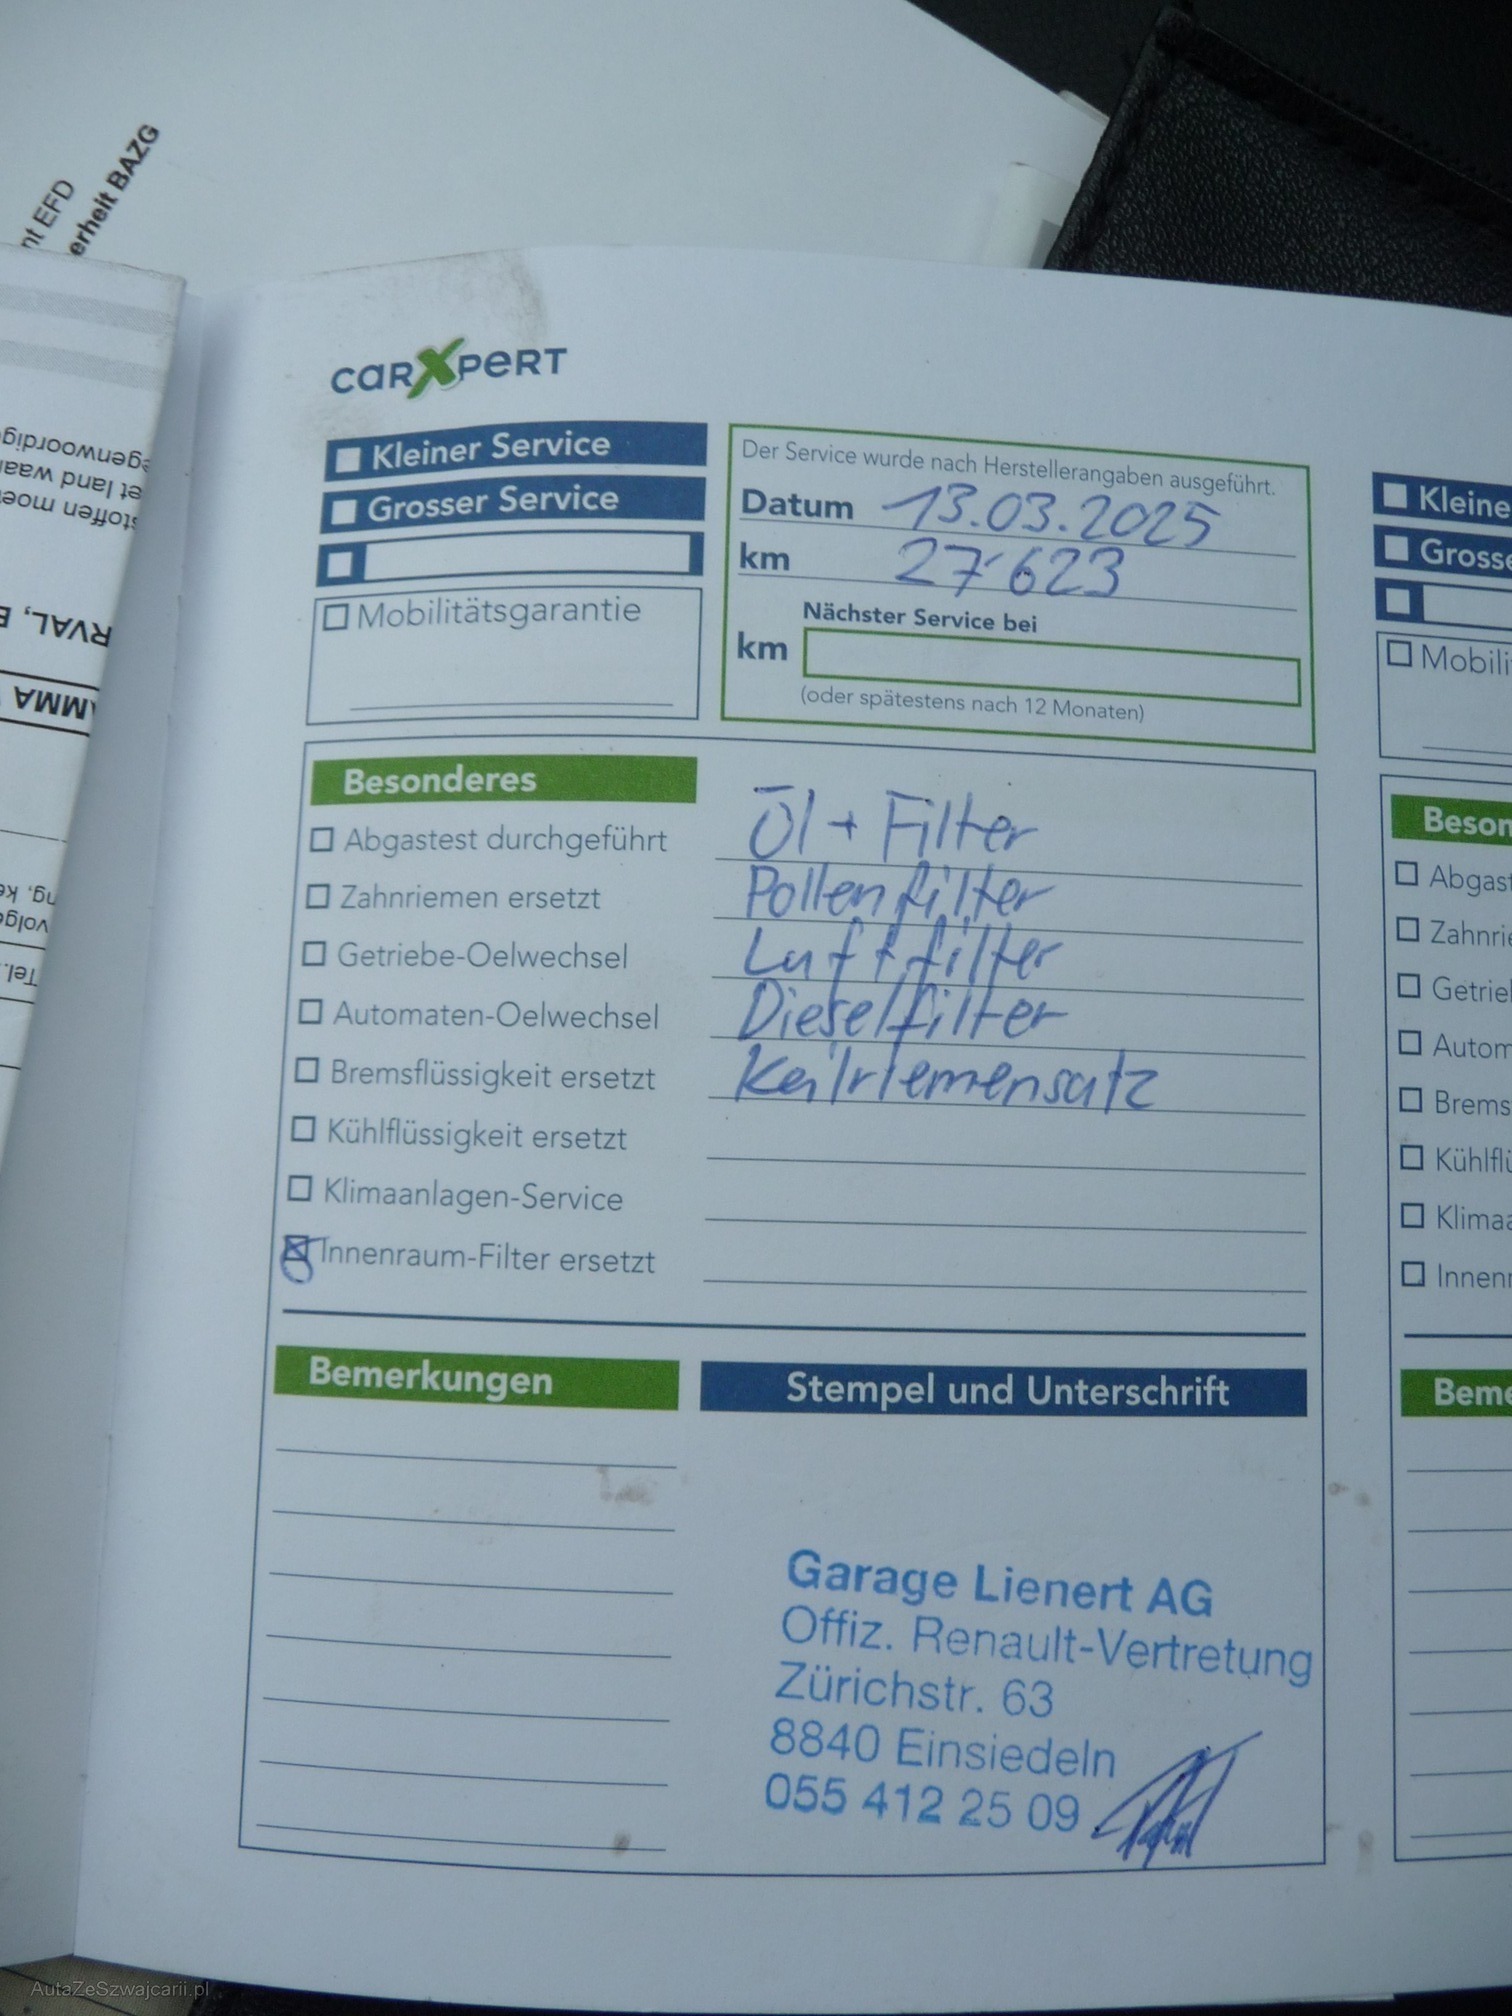 nt EFD
erheit BAZG
carXpert
Kleiner Service
Grosser Service
Mobilitätsgarantie
Der Service wurde nach Herstellerangaben ausgeführt.
Datum 13.03.2025
km 27'623
Nächster Service bei
km
(oder spätestens nach 12 Monaten)
Besonderes
Abgastest durchgeführt
Zahnriemen ersetzt
Getriebe-Oelwechsel
Automaten-Oelwechsel
Bremsflüssigkeit ersetzt
Kühlflüssigkeit ersetzt
Klimaanlagen-Service
Innenraum-Filter ersetzt
Öl + Filter
Pollenfilter
Luftfilter
Dieselfilter
Keilriemensatz
Bemerkungen
Stempel und Unterschrift
Garage Lienert AG
Offiz. Renault-Vertretung
Zürichstr. 63
8840 Einsiedeln
055 412 25 09
Kleine
Grosse
Mobili
Beson
Abgast
Zahnrie
Getriel
Autom
Brems
Kühlflü
Klimaa
Innenr
Beme
egenwoordige
et land waar
stoffen moe
RVAL, E
MMA
ng, ke
volge
Tel.
AutaZeSzwajcarii.pl